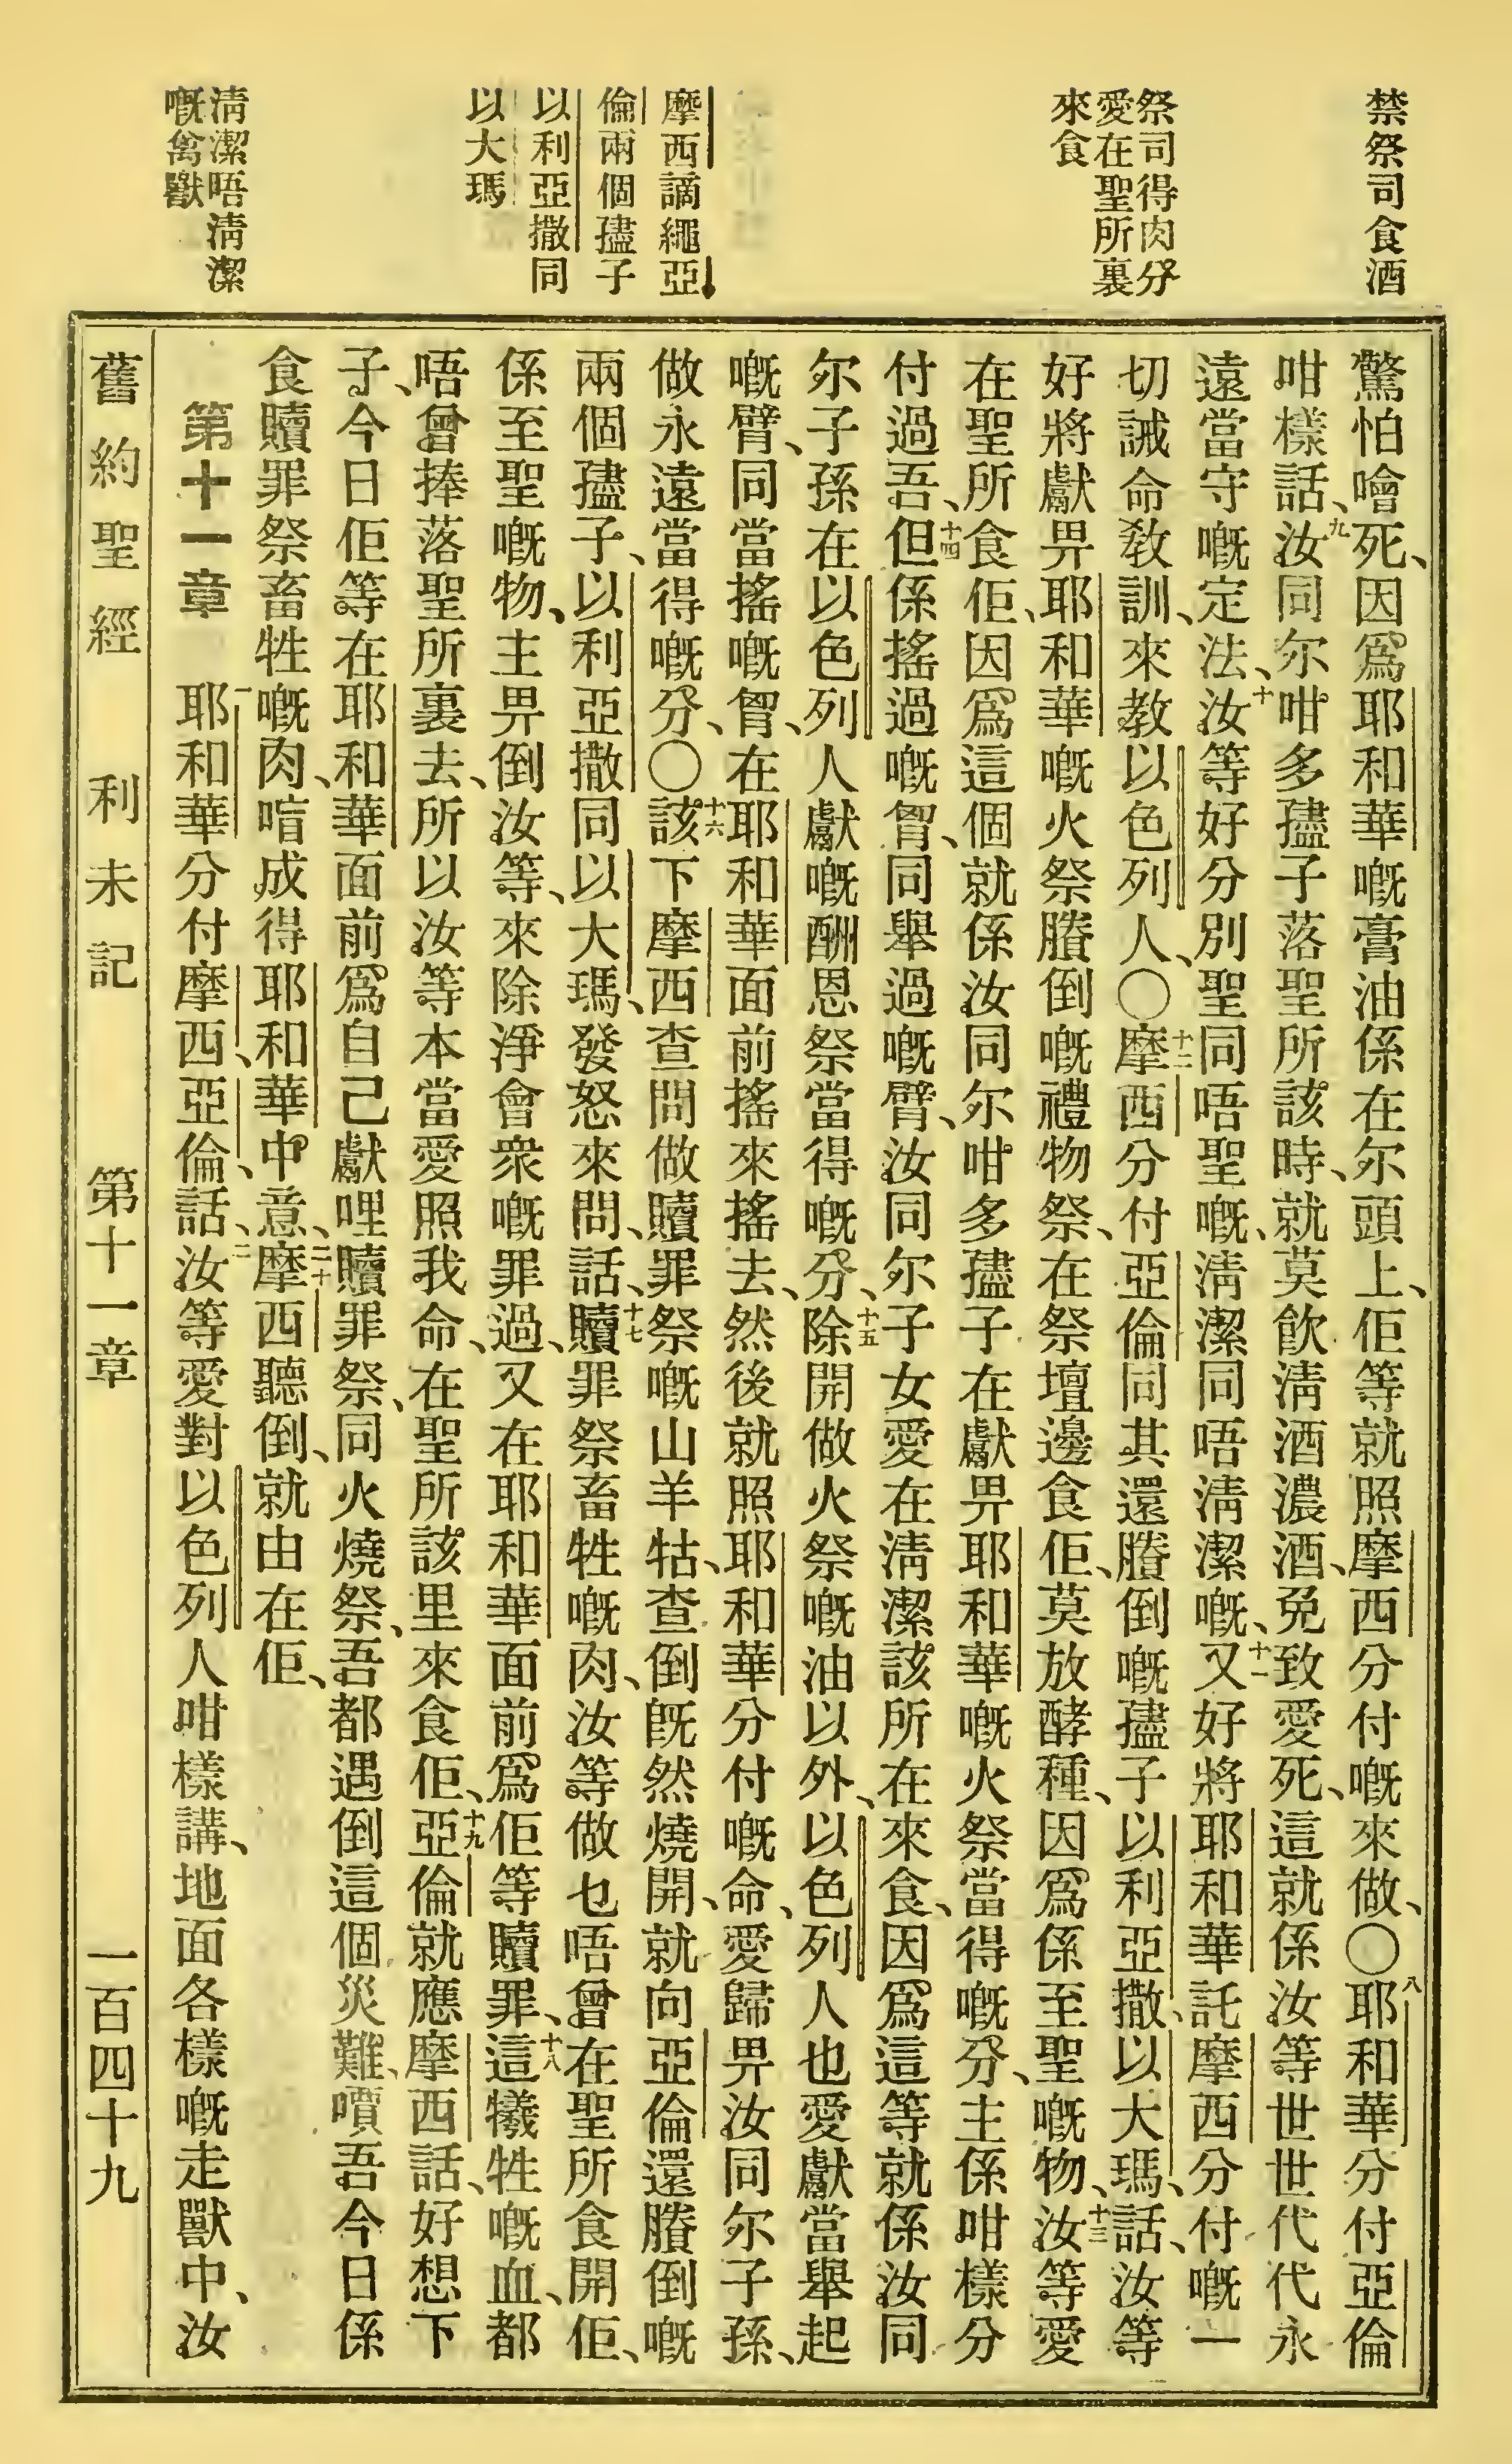 禁祭司食酒
祭司得肉分
愛在聖所裏
來食
摩西謫繩亞
倫兩個𧖣子
以利亞撒同
以大瑪
淸潔唔淸潔
嘅禽獸
驚怕噲死、因爲耶和華嘅膏油係在尔頭上、佢等就照摩西分付嘅來做、〇八耶和華分付亞倫
咁樣話、九汝同尔咁多𧖣子落聖所該時、就莫飮淸酒濃酒、免致愛死、這就係汝等世世代代永
遠當守嘅定法、十汝等好分別聖同唔聖嘅、淸潔同唔淸潔嘅、十一又好將耶和華託摩西分付嘅一
切誡命敎訓、來教以色列人、〇十二摩西分付亞倫同其還賸倒嘅𧖣子以利亞撒、以大瑪、話、汝等
好將獻畀耶和華嘅火祭賸倒嘅禮物祭、在祭壇邊食佢、莫放酵種、因爲係至聖嘅物、十三汝等愛
在聖所食佢、因爲這個就係汝同尔咁多𧖣子在獻畀耶和華嘅火祭當得嘅分、主係咁樣分
付過吾、十四但係搖過嘅胷、同舉過嘅臂、汝同尔子女愛在淸潔該所在來食、因爲這等就係汝同
尔子孫在以色列人獻嘅酬恩祭當得嘅分、十五除開做火祭嘅油以外、以色列人也愛獻當舉起
嘅臂、同當搖嘅胷、在耶和華面前搖來搖去、然後就照耶和華分付嘅命、愛歸畀汝同尔子孫、
做永遠當得嘅分、〇十六該下摩西查問做贖罪祭嘅山羊牯、查倒旣然燒開、就向亞倫還賸倒嘅
兩個𧖣子、以利亞撒同以大瑪、發怒來問、話、十七贖罪祭畜牲嘅肉、汝等做乜唔曾在聖所食開佢、
係至聖嘅物、主畀倒汝等、來除淨會衆嘅罪過、又在耶和華面前爲佢等贖罪、十八這犧牲嘅血、都
唔曾捧落聖所裏去、所以汝等本當愛照我命、在聖所該里來食佢、十九亞倫就應摩西話、好想下
子、今日佢等在耶和華面前爲自己獻哩贖罪祭、同火燒祭、吾都遇倒這個災難、嘳吾今日係
食贖罪祭畜牲嘅肉、喑成得耶和華中意、二十摩西聽倒、就由在佢、
第十一章　一耶和華分付摩西、亞倫、話、二汝等愛對以色列人咁樣講、地面各樣嘅走獸中、汝
舊約聖經　利未記　第十一章　一百四十九